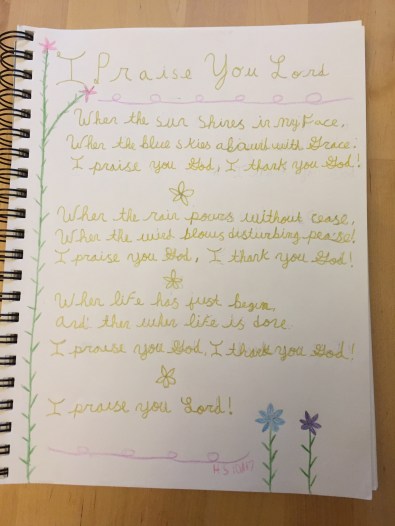 I Praise You Lord
When the sun shines in my face,
When the blue skies abound with Grace:
I praise you God, I thank you God!
When the rain pours without cease,
When the wind blows disturbing peace!
I praise you God, I thank you God!
When life has just begun,
And then when life is done
I praise you God, I thank you God!
I praise you Lord!